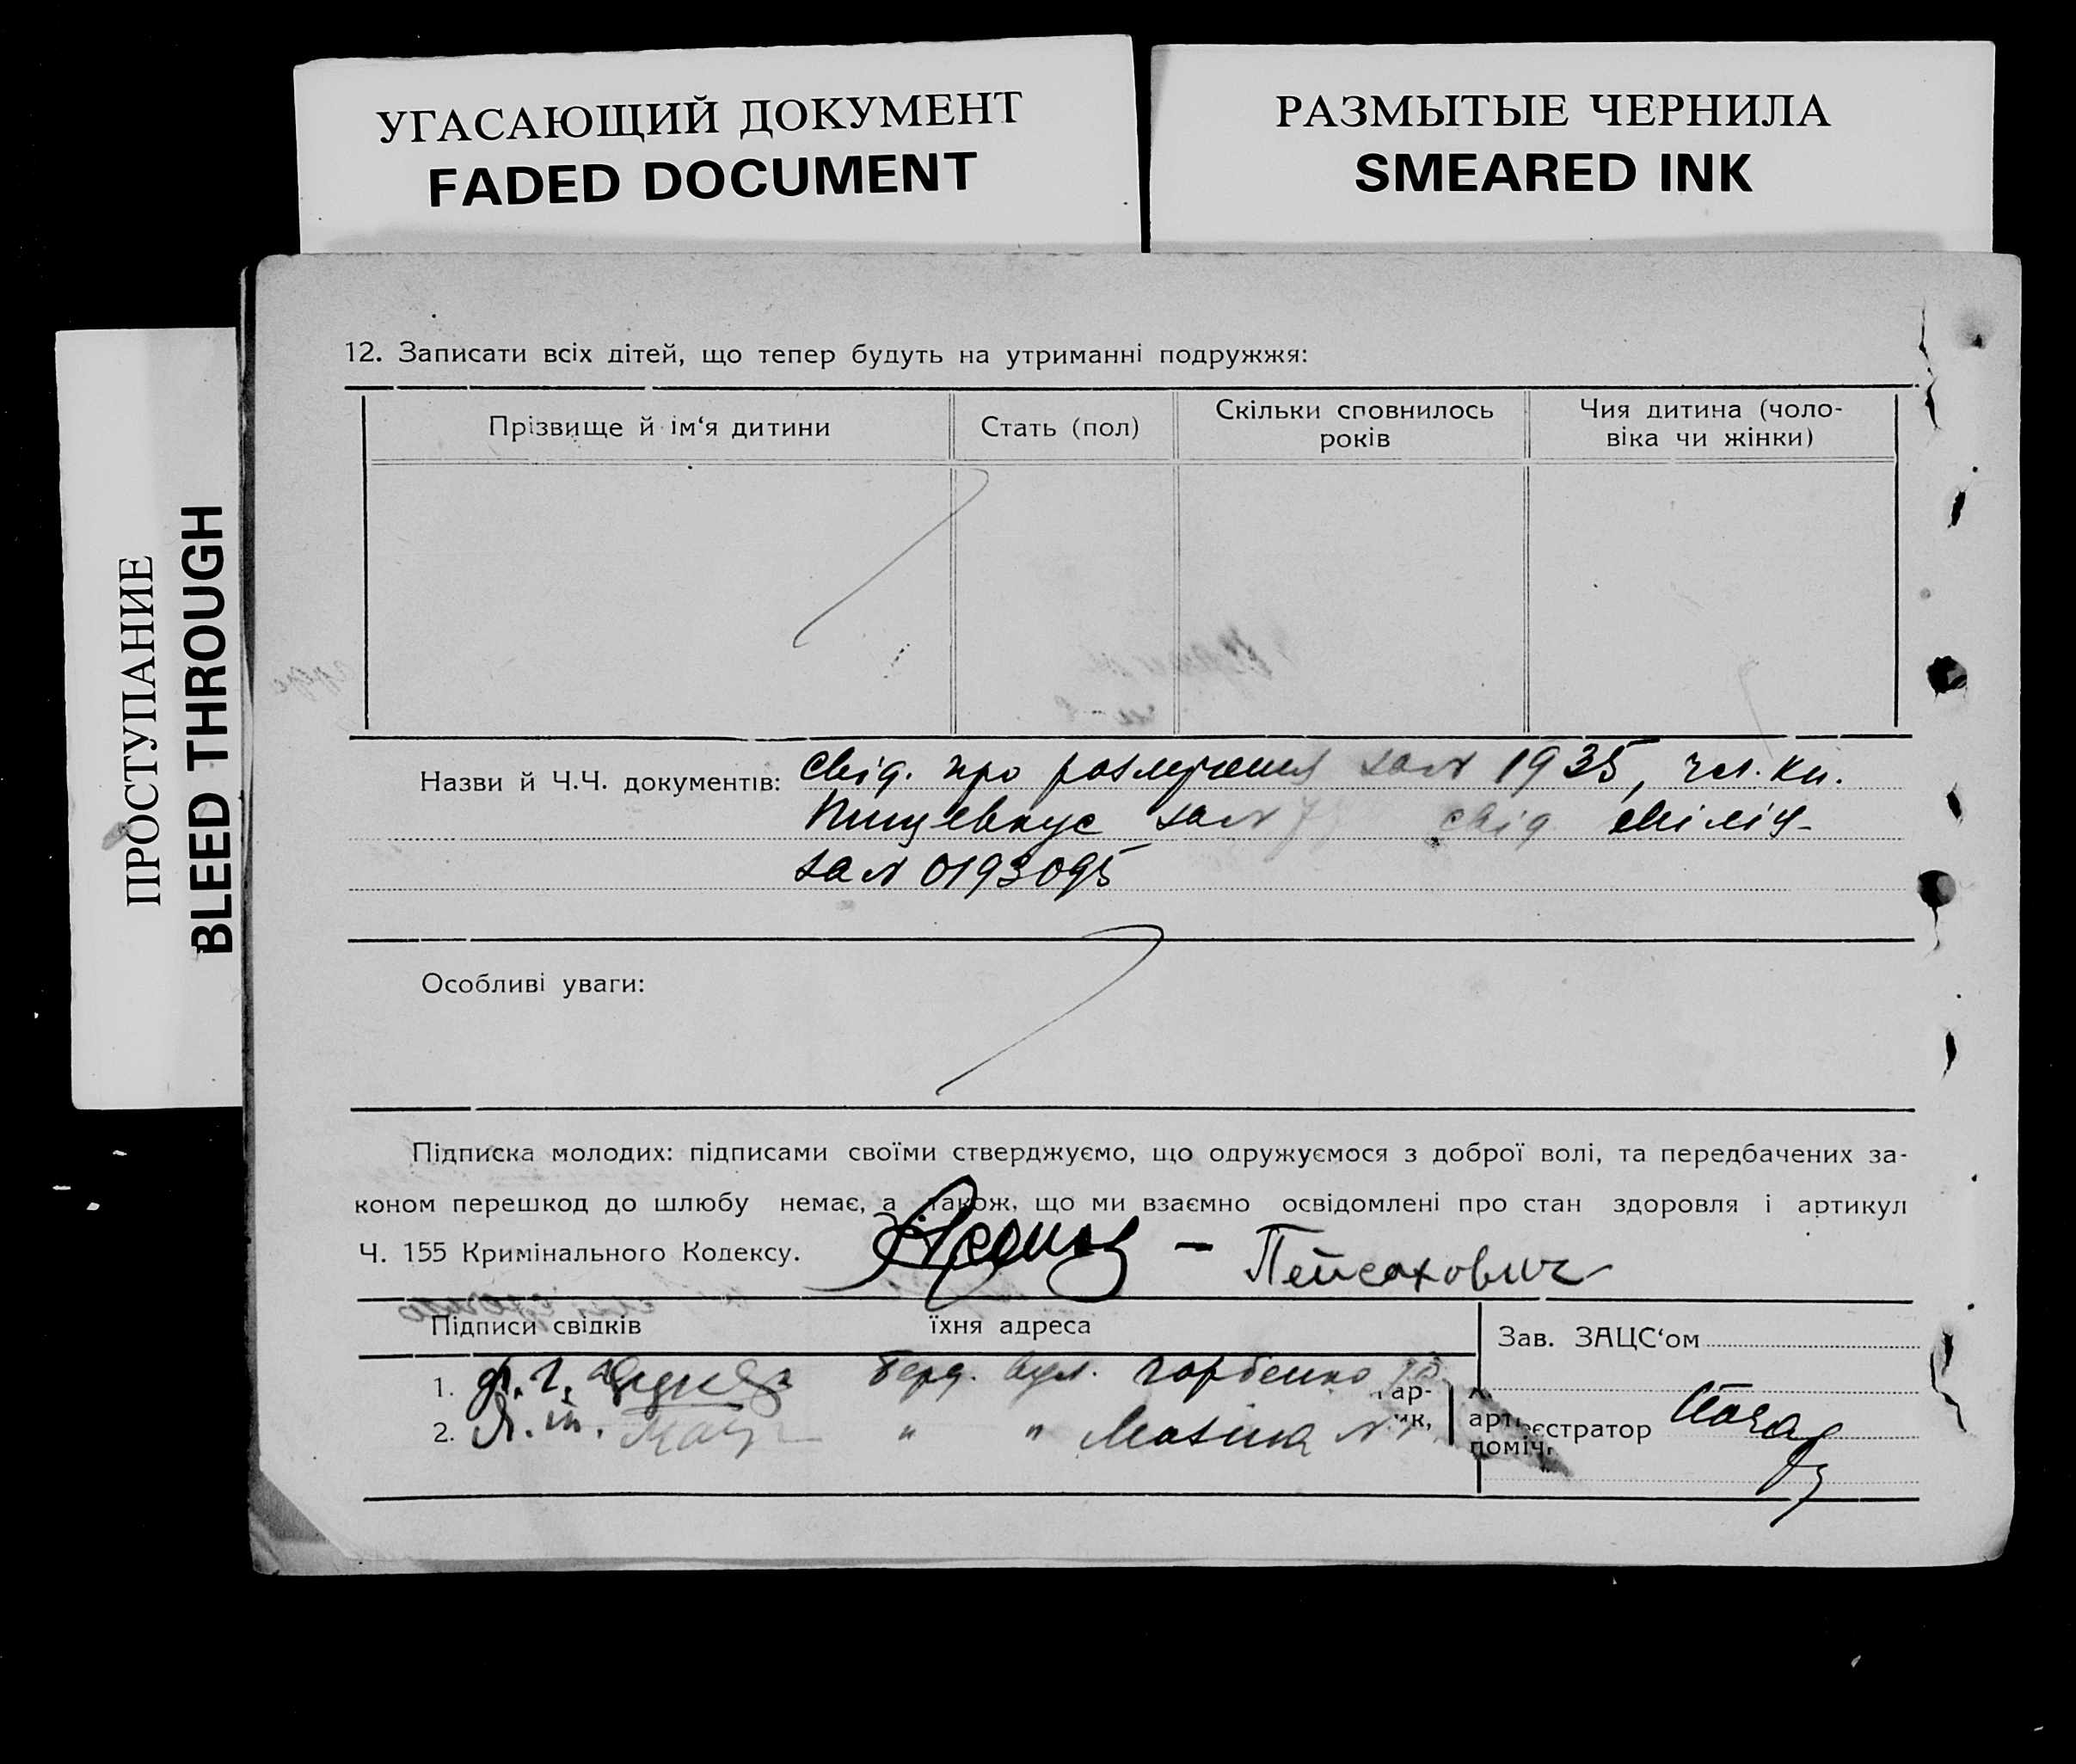 УГАСАЮЩИЙ ДОКУМЕНТ
FADED DOCUMENT
РАЗМЫТЫЕ ЧЕРНИЛА
SMEARED INK
ПРОСТУПАНИЕ
BLEED THROUGH
12. Записати всіх дітей, що тепер будуть на утриманні подружжя:
Прізвище й ім‘я дитини
Стать (пол)
Скільки сповнилось
років
Чия дитина (чоло-
віка чи жінки)
Назви й Ч.Ч. документів: свід. про розлучення за № 1935, чл. кн.
за № свід
за № 0193095
Особливі уваги:
Підписка молодих: підписами своїми стверджуємо, що одружуємося з доброї волі, та передбачених за-
коном перешкод до шлюбу немає, а також, що ми взаємно освідомлені про стан здоровля і артикул
Ч. 155 Кримінального Кодексу. – Пейсахович
Підписи свідків
їхня адреса
Зав. ЗАЦС‘ом
1. Берд. вул.
2. " "
естратор